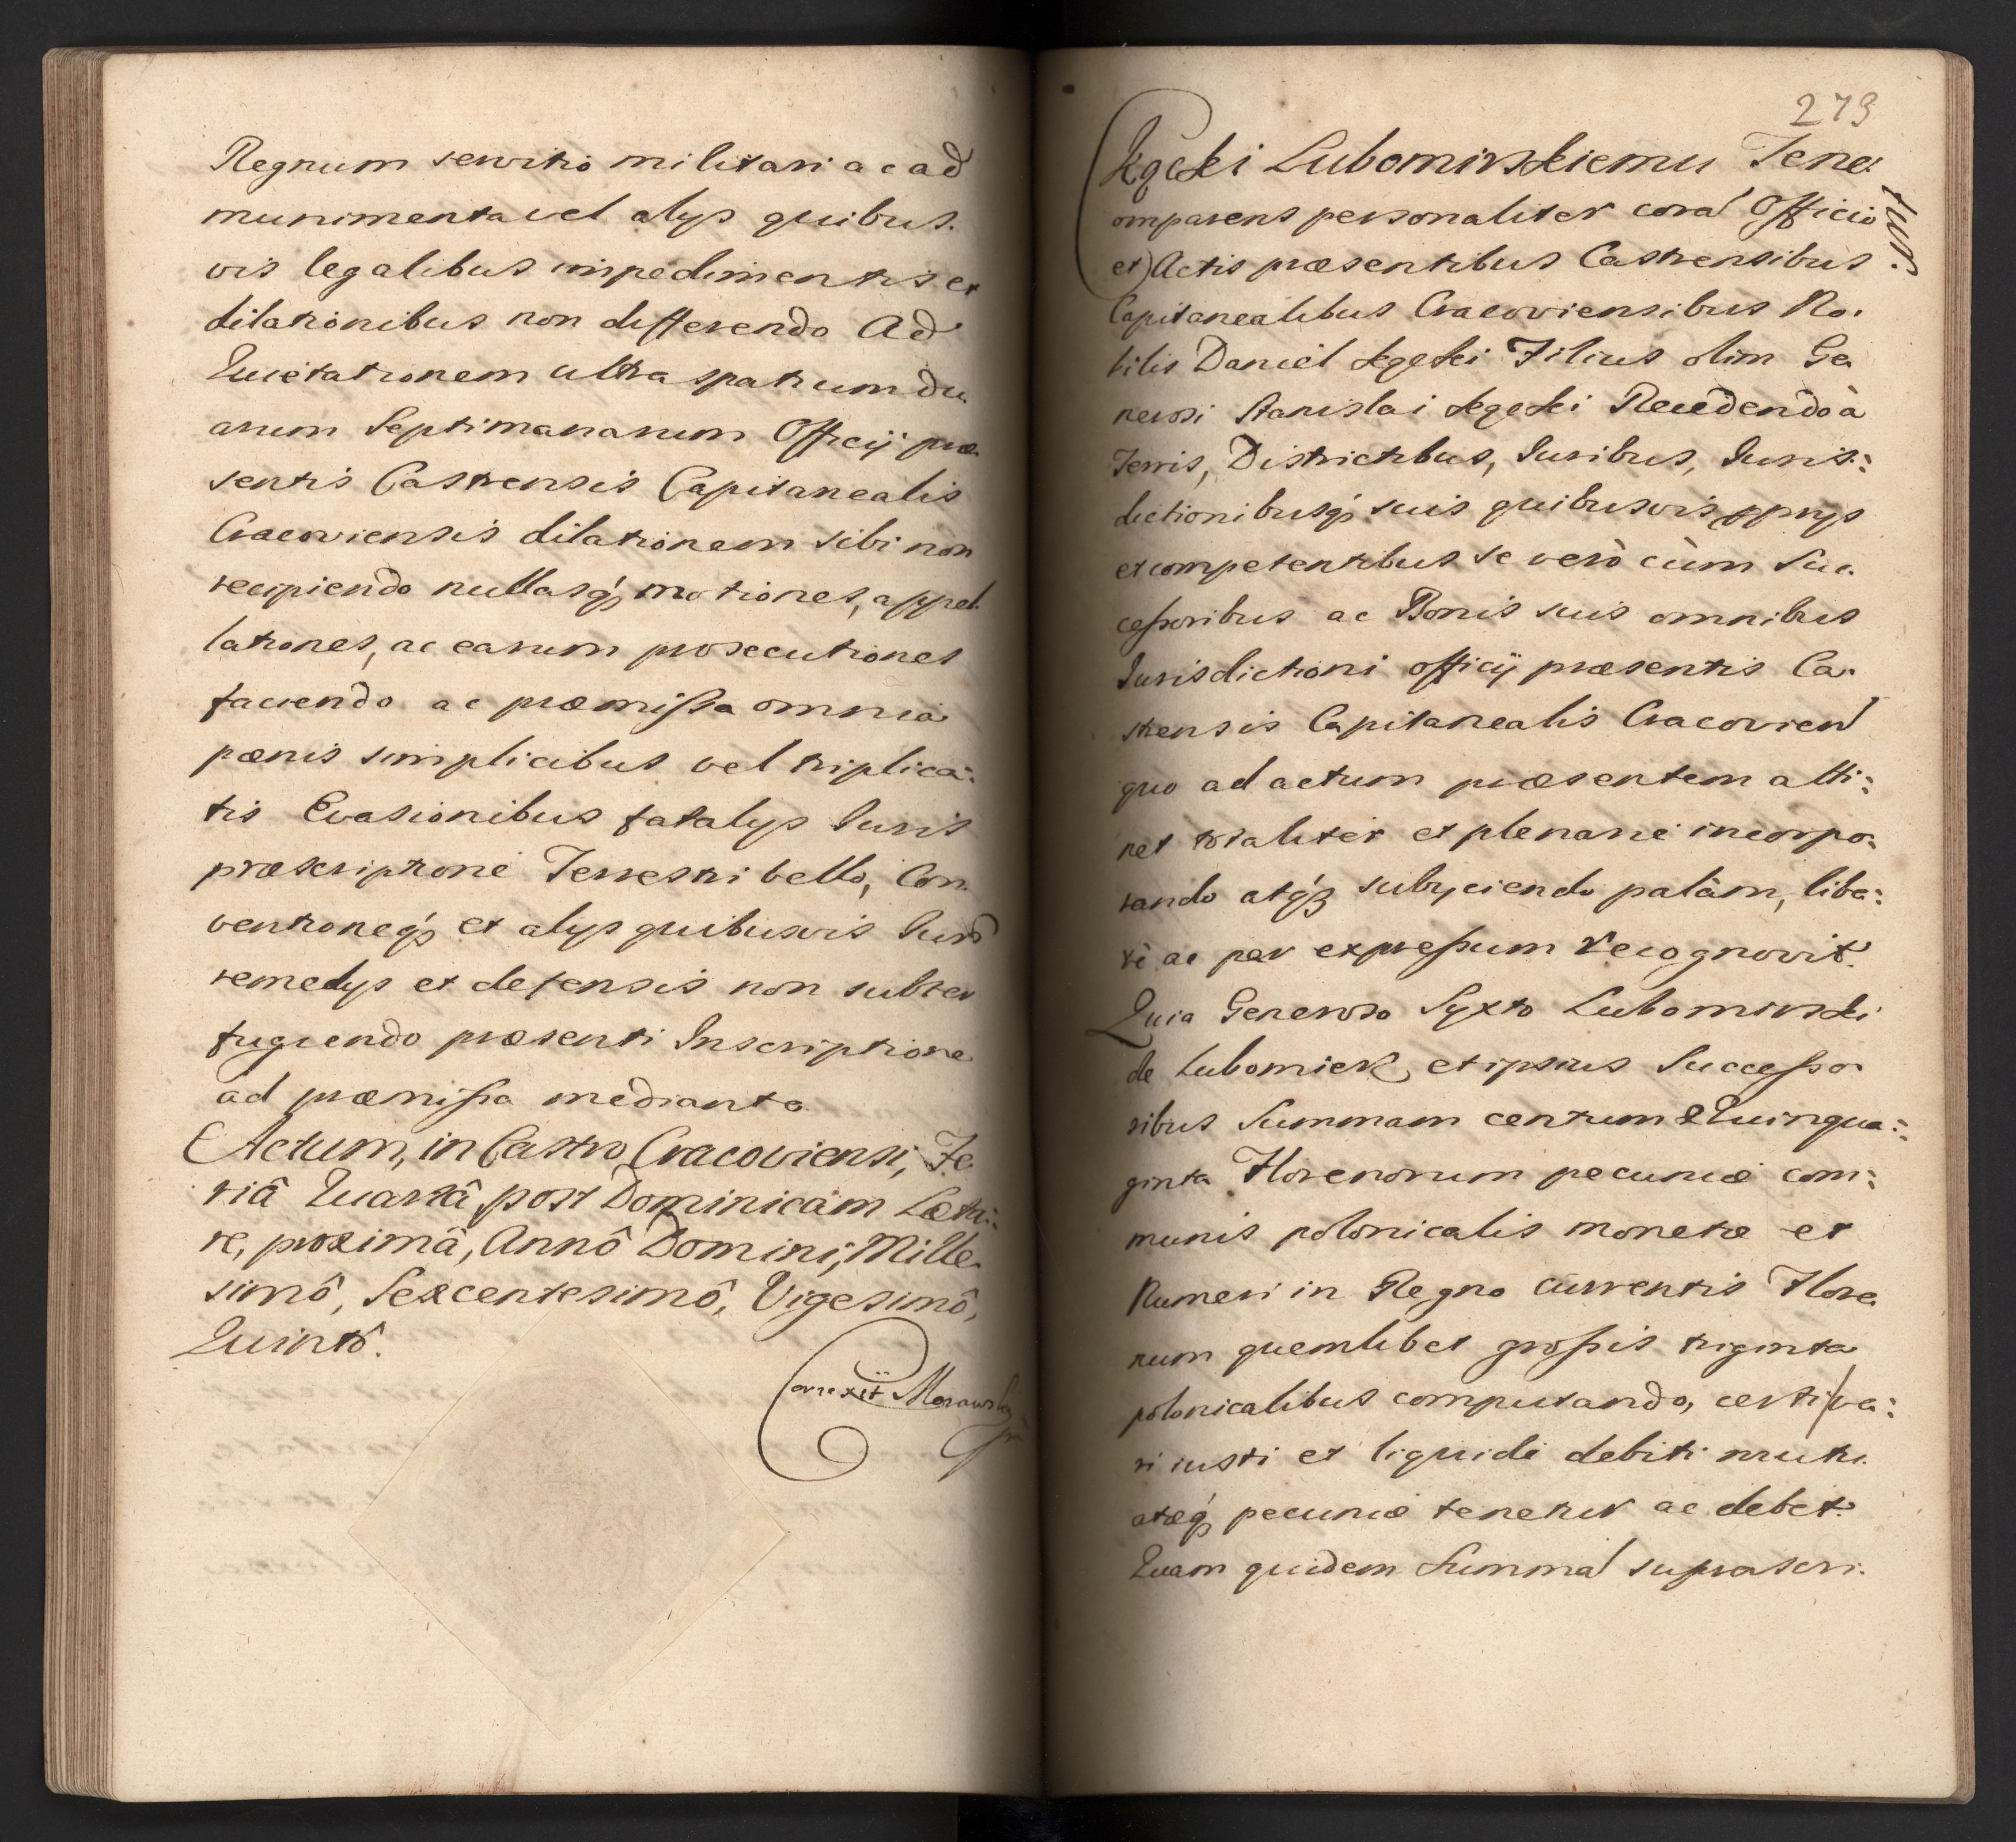 Regnum servitio militari ac ad
munimenta vel alys quibus.
vis legalibus impedimentis et
dilationibus non differendo Ad
Quietationem ultra spatium du
arum Septimanarum Officij præ
sentis Castrensis Capitanealis
Cracoviensis dilationem sibi non
recipiendo nullasq́ꝫ motiones, appel
lationes, ac earum prosecutiones
faciendo ac præmissa omnia
pænis simplicibus vel triplica:
tis Evasionibus fatalys Juris
præscriptione Terrestri bello, Con
ventioneq́ꝫ et alys quibusvis Juris
remedys et defensis non subter
fugiendo præsenti Inscriptione
ad præmissa mediante
Actum, in Castro Cracoviensi, Fe
riâ Quartâ post Dominicam Læta:
re, proximâ, Annô Domini, Mille
simô, Sexcentesimô, Vigesimô,
Quintô.
Correxit Morawski
279
Łęcki Lubomirskiemu Tene
tur.
omparens personaliter corā Officio
et Actis præsentibus Castrensibus
Capitanealibus Cracoviensibus No.
bilis Daniel Łęcki Filius olim Ge
nerosi Stanislai Łęcki Recedendo à
Terris, Districtibus, Juribus, Juris:
dictionibusq́ꝫ suis quibusvis pprys
et competentibus se verò cùm Suc.
cessoribus ac Bonis suis omnibus
Jurisdictioni officij præsentis Ca.
strensis Capitanealis Cracovien
quo ad actum præsentem atti:
net totaliter et plenarie incorpo:
rando atq́ꝫ subyciendo palàm, libe:
rè ac per expressum recognovit.
Quia Generoso Syxto Lubomirski
de Lubomierz, et ipsius Successo
ribus Summam centum Quinqua:
ginta Florenorum pecuniæ com:
munis polonicalis monetæ et
Numeri in Regno currentis Flore
num quemlibet grossis triginta
polonicalibus computando, certi/ve:
ri iusti et liquidi debiti mutu.
atæq́ꝫ pecuniæ tenetur ac debet.
Quam quidem Summā suprascri.